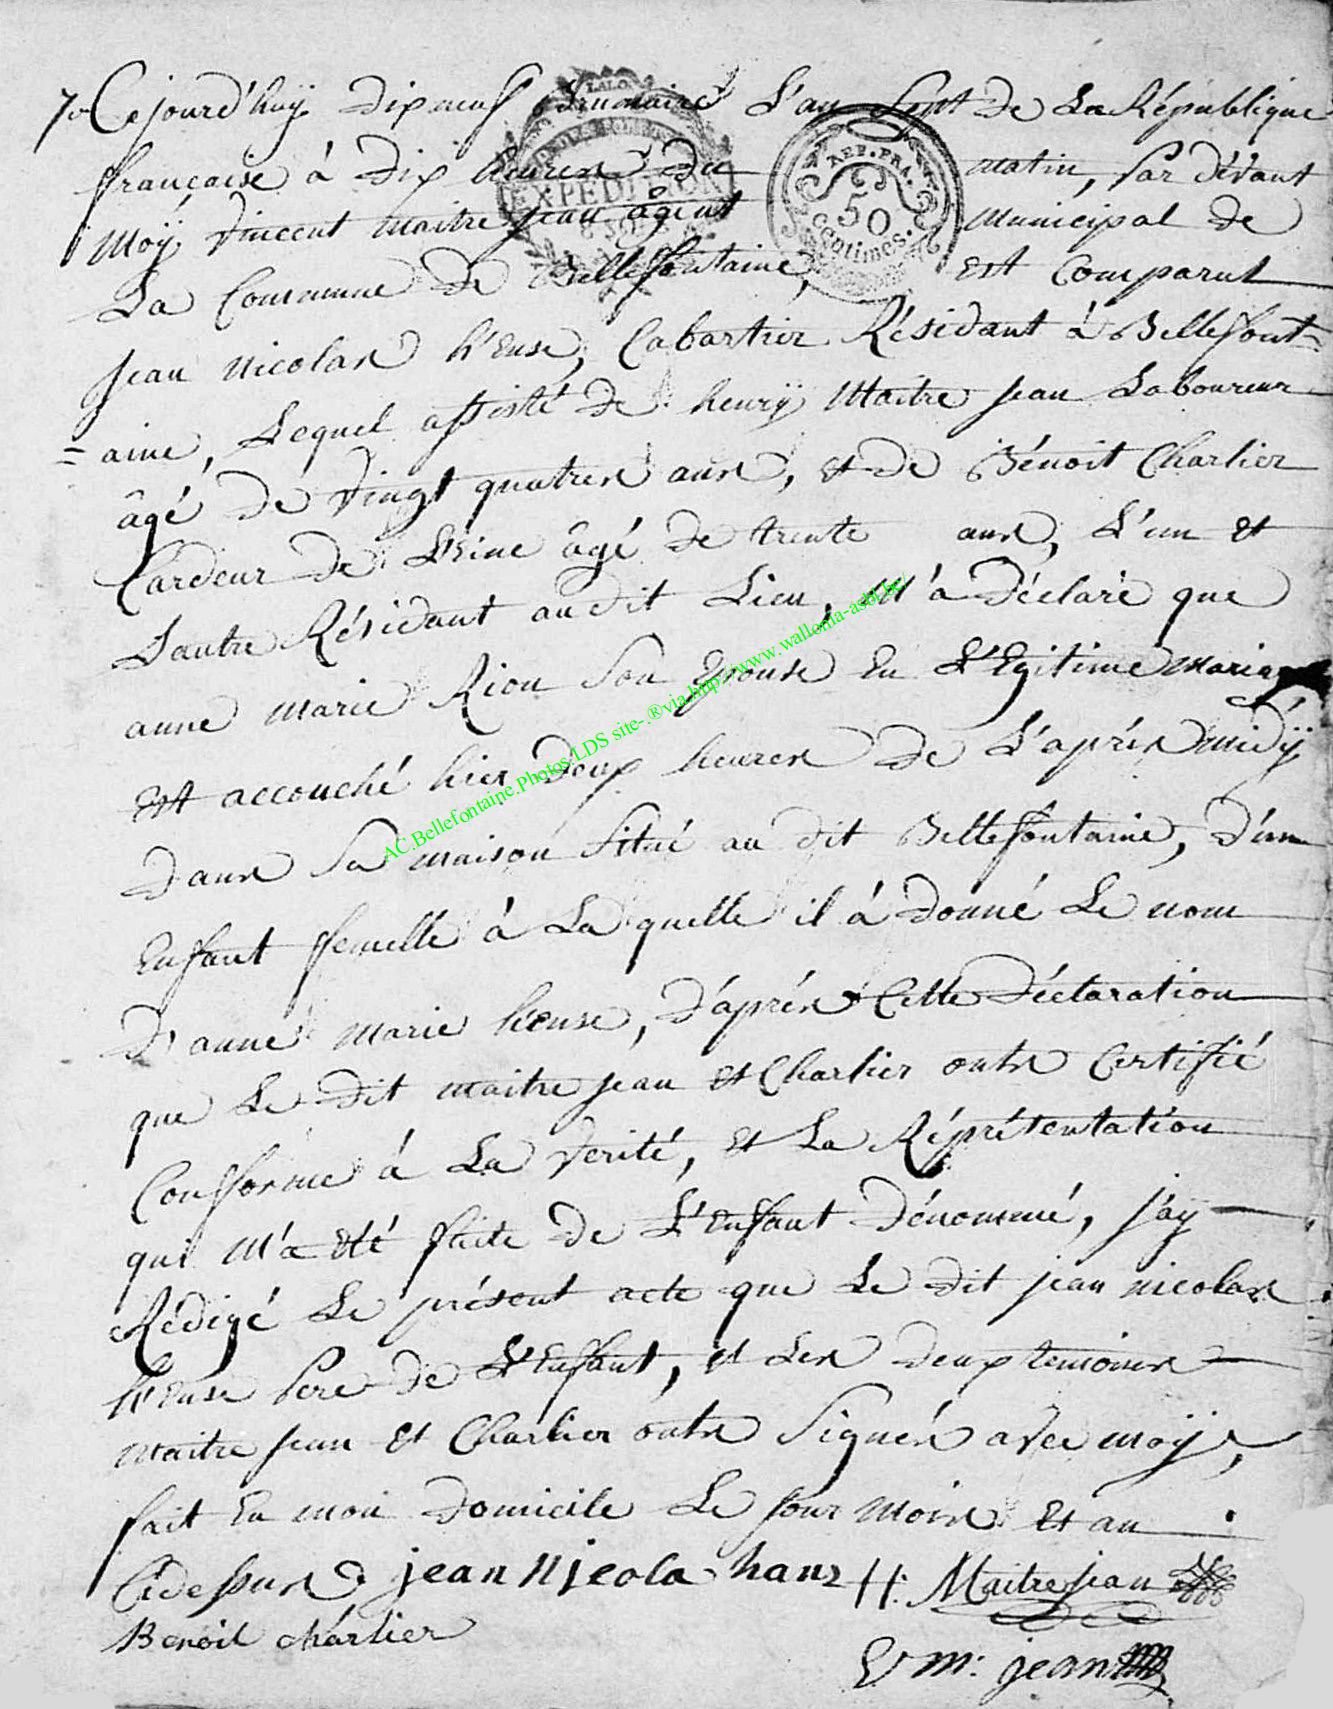 7e Cejourd'huÿ dix neuf Brumaire L'an Sept de La République
française à dix heures du matin, Par dévant
Moÿ Vincent maitre jean âgent Municipal de
La Commune de Bellefontaine, est Comparut
Jean Nicolas h'euse, Cabartier Résidant à Bellefont=
=aine, Lequel assisté de henrÿ Maitre jean Laboureur
âgé de Vingt quatres ans, et de Bénoit Charlier
Cardeur de L'eine âgé de trente ans, L'un et
L'autre Résidant au dit Lieu, M'a Déclaré que
anne Marie Riou Son Epouse En L'Egitime Mariage
Est accouché hier Deux heures de L'après midÿ
Dans Sa maison Situé au dit Bellefontaine, D'un
Enfant ffemelle à La quelle il à donné Le nom
D'anne Marie heuse, D'après Cette Déclaration
que Le dit maitre jean et Charlier onts Certifié
Confforme à La Verité, et La Réprésentation
qui M'a été ffaite de L'Enfant Dénommé, j'aÿ
Rédigé Le présent acte que Le dit jean nicolas
h'euse Pere de L'Enfant, et Les deux temoins
Maitre jean et Charlier onts Signés avec moÿ,
fait En mon Domicile Le jour Mois et an
Cidessus. jean Nicola hanz H: Maitrejean
Benoit charlier
V m: jean
EXPÉDITION
REP. FRA.
50
centimes.
AC.Bellefontaine.Photos.LDS site-.®via.http://www.wallonia-asbl.be/